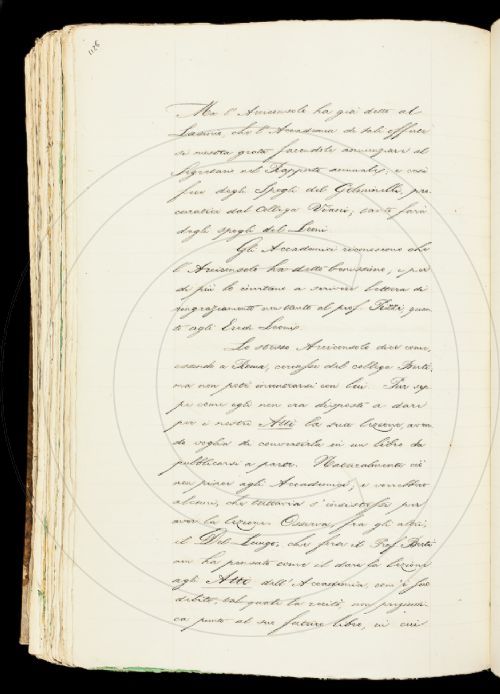 1126
Ma l'Arciconsolo ha già detto al
Lasinio, che l'Accademia di tali offerte
si mostra grata facendole annunziare al
Segretario nel Rapporto annuale; e così
fece degli Spogli del Gelmini, pro
curatici dal Collega Vanni, tanto farà
degli spogli del Leoni.
Gli Accademici riconoscono che
l'Arciconsolo ha detto benissimo, e per
di più lo invitano a scrivere lettera di
ringraziamento non tanto al prof. Pizzi, quan
to agli Eredi Leonii.
Lo stesso Arciconsolo dice come,
essendo a Roma, cercasse del collega Berti,
ma non poté incontrarsi con lui. Pur sep
pe come egli non era disposto a dare
per i nostri Atti la sua lezione, aven
do voglia di convertirla in un libro da
pubblicarsi a parte. Naturalmente ciò
non piace agli Accademici, e vorrebbero
alcuni, che tuttavia s'insistesse per
aver la lezione. Osserva, fra gli altri,
il Del Lungo, che forse il Prof. Berti
non ha pensato come il dare la lezione
agli Atti dell'Accademia, com'è suo
debito, tal quale la recitò, non pregiudi
ca punto al suo futuro libro, in cui